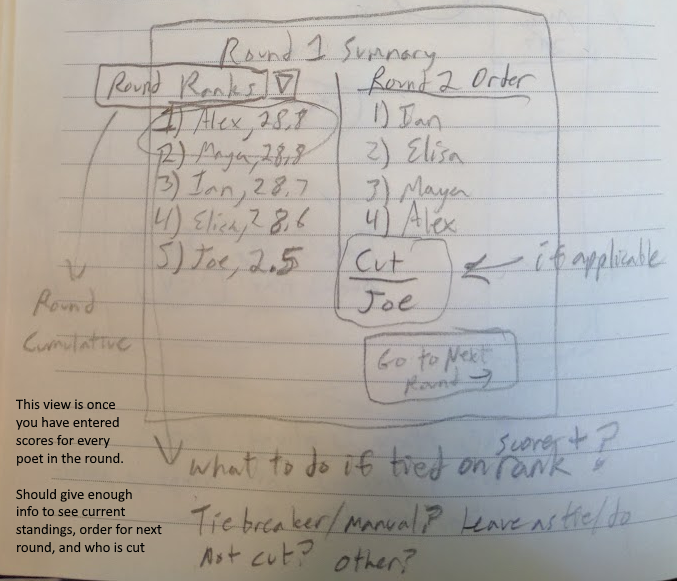 Round 1 Summary
Round Ranks
1) Alex, 28.8
2) Maya, 28.8
3) Ian, 28.7
4) Elisa, 28.6
5) Joe, 2.5
Round 2 Order
1) Ian
2) Elisa
3) Maya
4) Alex
Cut
Joe
if applicable
Go to Next
Round →
Round
Cumulative
This view is once
you have entered
scores for every
poet in the round.
Should give enough
info to see current
standings, order for next
round, and who is cut
What to do if tied on score + rank?
Tiebreaker/manual? Leave as tie/do
not cut? other?